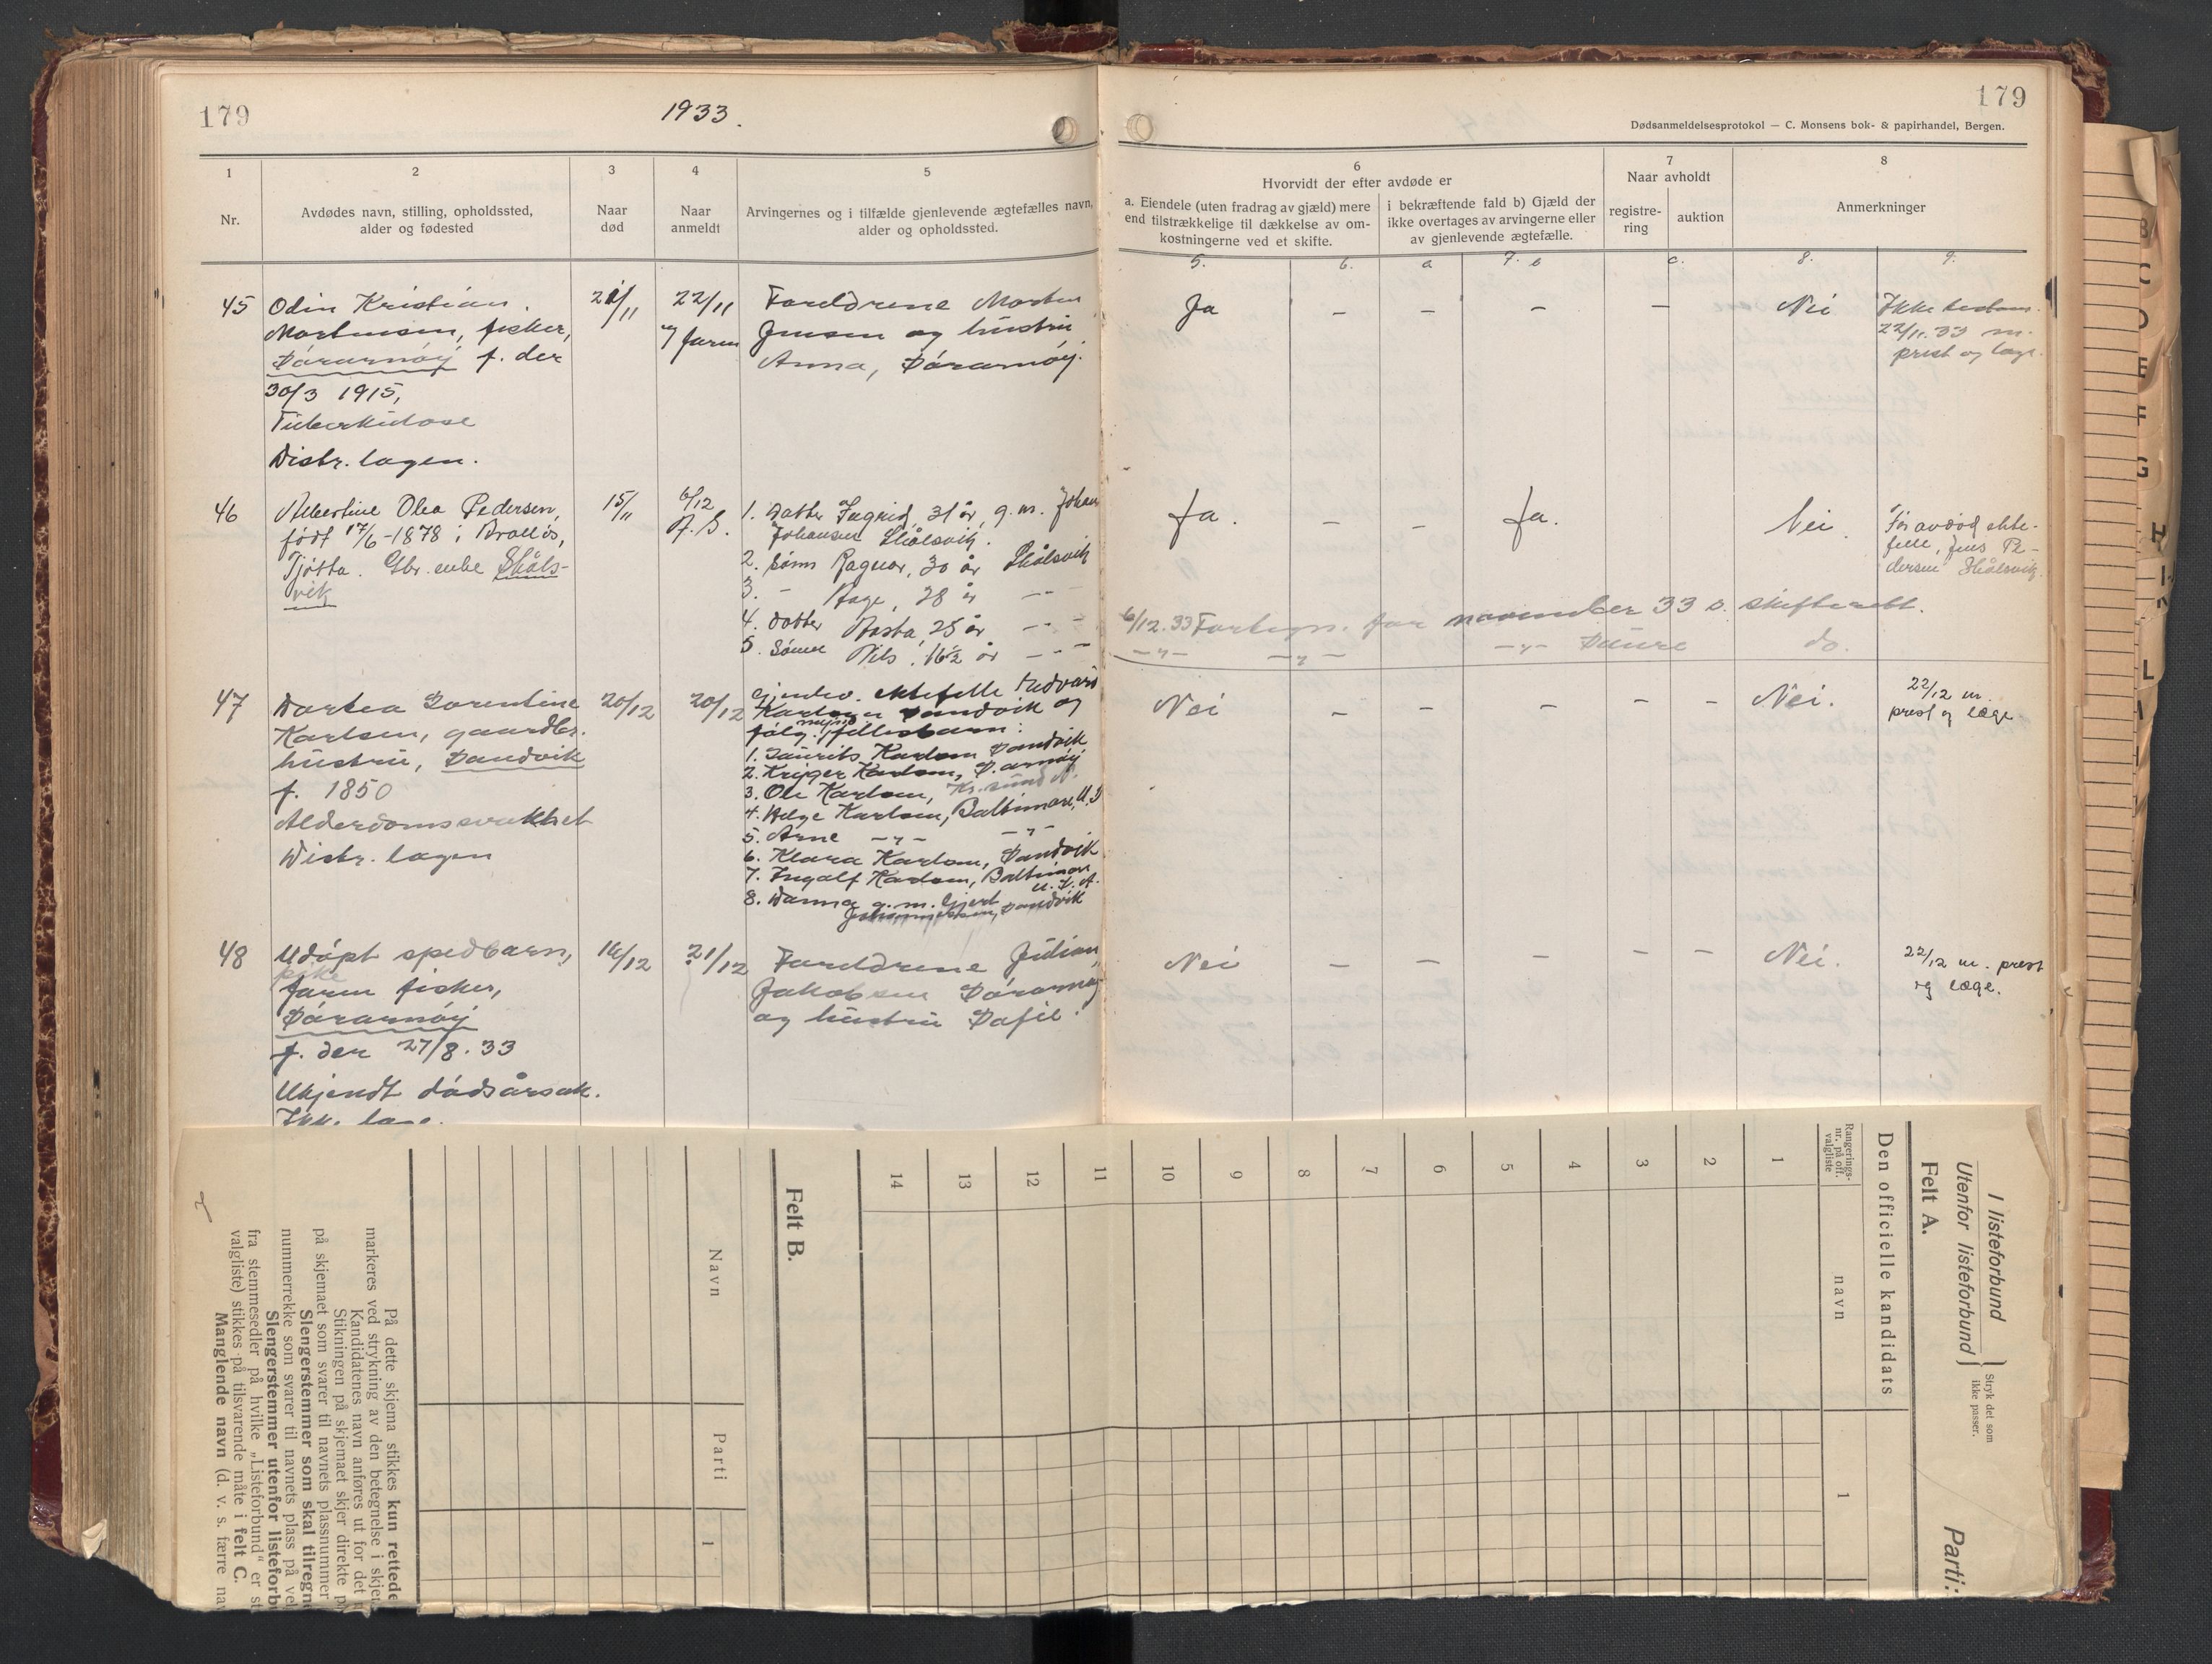 179
1933.
179
Dødsanmeldelsesprotokol — C. Monsens bok- & papirhandel, Bergen.
1
2
3
4
5
6
7
8
Nr.
Avdødes navn, stilling, opholdssted,
alder og fødested
Naar
død
Naar
anmeldt
Arvingernes og i tilfælde gjenlevende ægtefælles navn,
alder og opholdssted.
Hvorvidt der efter avdøde er
a. Eiendele (uten fradrag av gjæld) mere
end tilstrækkelige til dækkelse av om-
kostningerne ved et skifte.
i bekræftende fald b) Gjæld der
ikke overtages av arvingerne eller
av gjenlevende ægtefælle.
Naar avholdt
registre-
ring
auktion
Anmerkninger
5. 6. a 7. b c. 8. 9.
45
Odin Kristian
Mortensen, fisker,
Sörarnöy f. der
30/3 1915,
Tuberkulose
Distr. lægen.
21/11
22/11
farm
Foreldrene Morten
Jensen og hustru
Anna, Sörarnöy.
Ja – – – – Nei
Ikke
22/11. 33 m.
prest og læge.
46
Albertine Olea Pedersen,
født 17/6 - 1878 i
Tjötta. Gbr. enke Skåls-
vik
15/11
6/12
1. Datter Ingrid, 31 år, g. m. Johan
Johansen Skålsvik.
2. Sönn Ragnar, 30 år Skålsvik
3. – Aage, 28 år – –
4. Datter Asta, 25 år – –
5. Sönn Nils, 16½ år – –
Ja. – – Ja. Nei.
Før avdød ekte-
felle, Jens Pe-
dersen Skålsvik.
6/12. 33 Fortegn. for november 33 s. skifterett.
–"– –"– –"– Saure do.
47
Dortea Lorentine
Karlsen, gaardbr.
hustru, Sandvik
f. 1850
Alderdomssvakhet
Distr. lægen
20/12
20/12
Gjenlev. ektefelle Edvard
Karlsen Sandvik og
følg. myndige fellesbarn:
1. Laurits Karlsen Sandvik
2. Kryger Karlsen, S. arnöy
3. Ole Karlsen, Kr. sund N.
4. Helge Karlsen, Baltimore, U. S
5. Arne –"– –"–
6. Klara Karlsen, Sandvik
7. Ingolf Karlsen, Baltimore
U. S. A.
8. Danna g. m. Gjert
Johannessen, Sandvik
Nei – – – – – Nei.
22/12 m.
prest og læge
48
Udöpt spedbarn,
pike
faren fisker,
Sörarnöy
f. der 27/8. 33
Ukjendt dödsårsak.
Ikke læge.
16/12
21/12
Foreldrene Julian
Jakobsen Sörarnöy
og hustru Sofie.
Nei – – – – – Nei.
22/12 m. prest
og læge.
I listeforbund
Utenfor listeforbund
Stryk det som
ikke passer.
Parti:
Felt A.
Den officielle kandidats
Rangerings-
nr. på off.
valgliste
navn
1
1
2
3
4
5
6
7
8
9
10
11
12
13
14
Felt B.
Navn
Parti
1
På dette skjema stikkes kun rettede
markeres ved strykning av den betegnelse i skje
Kandidatenes navn anføres ut for det
Stikningen på skjemaet skjer direkte
på skjemaet som svarer til navnets plassnummer
Slengerstemmer som skal tilregn
nummerrekke som svarer til navnets plass på
Slengerstemmer utenfor listeforb
fra stemmesedler på hvilke „Listeforbund“ er
valgliste) stikkes på tilsvarende måte i felt C.
Manglende navn (d. v. s. færre
B
C
D
E
F
G
H
L